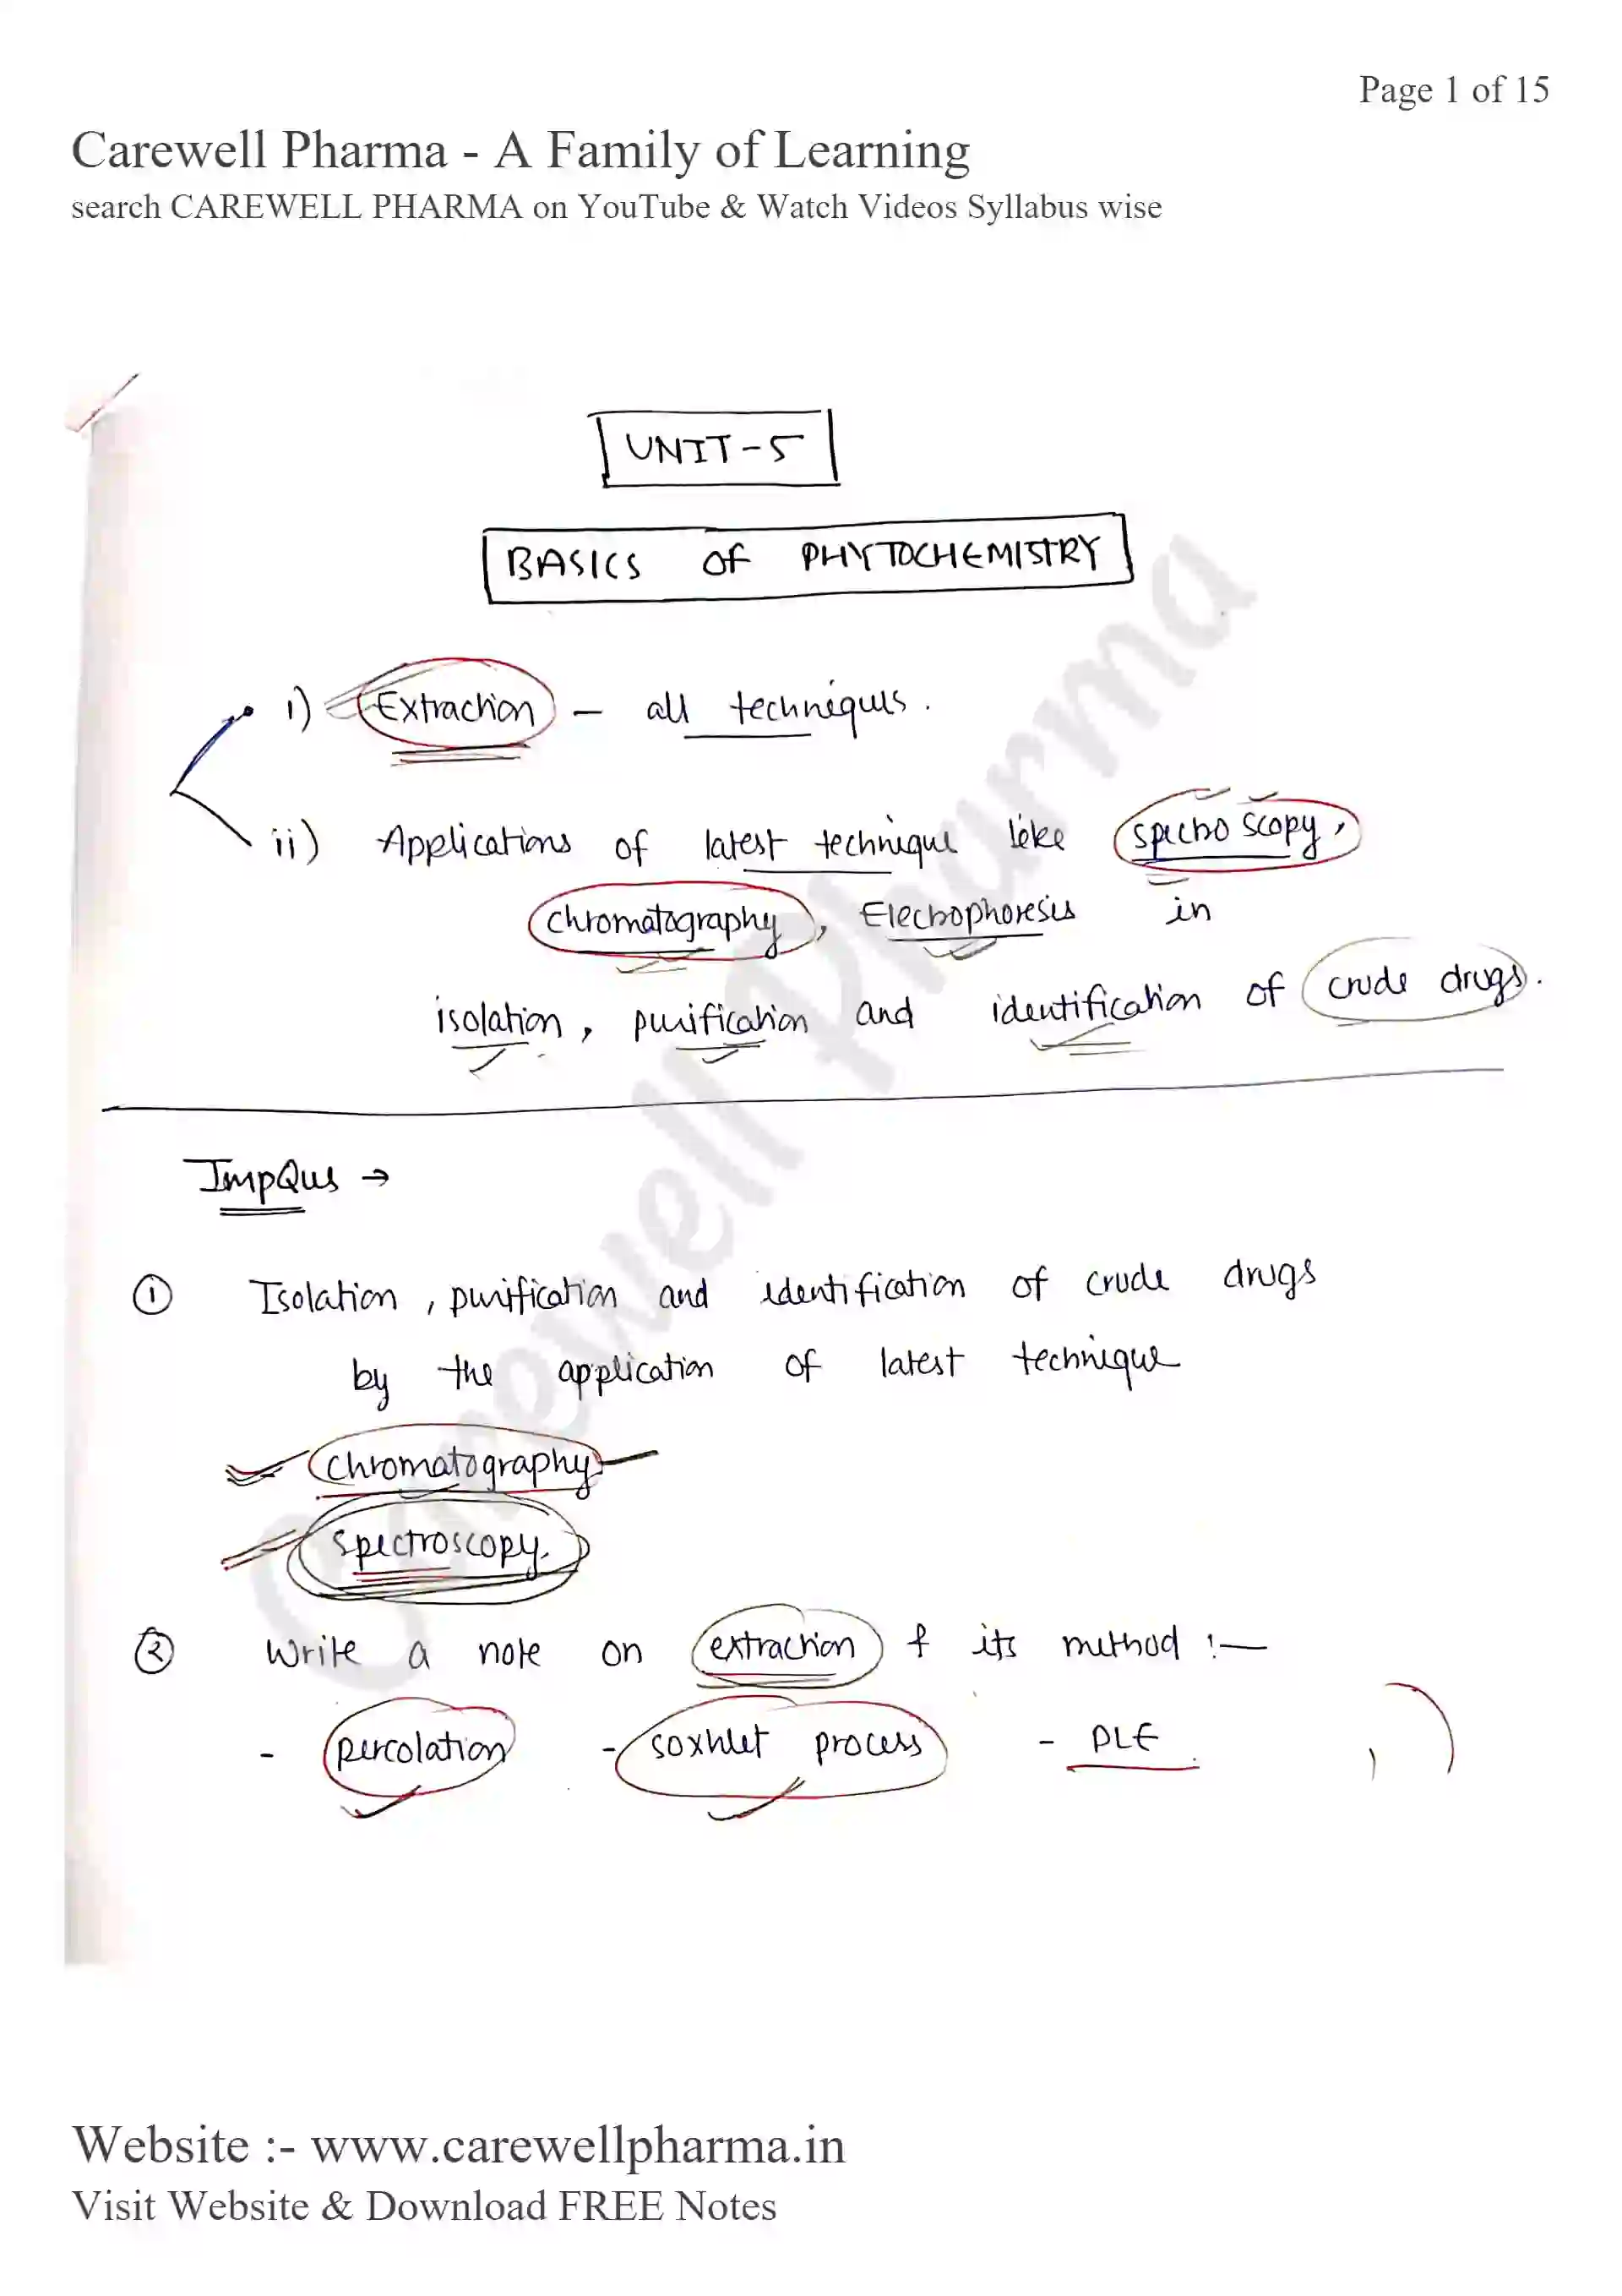 Page 1 of 15
Carewell Pharma - A Family of Learning
search CAREWELL PHARMA on YouTube & Watch Videos Syllabus wise
UNIT-5
BASICS OF PHYTOCHEMISTRY
i) Extraction - all techniques.
ii) Applications of latest technique like spectroscopy,
chromatography, Electrophoresis in
isolation, purification and identification of crude drugs.
Imp Qus →
① Isolation, purification and identification of crude drugs
by the application of latest technique
chromatography
spectroscopy.
② Write a note on extraction & its method :-
- percolation - soxhlet process - PLE
Carewell Pharma
Website :- www.carewellpharma.in
Visit Website & Download FREE Notes